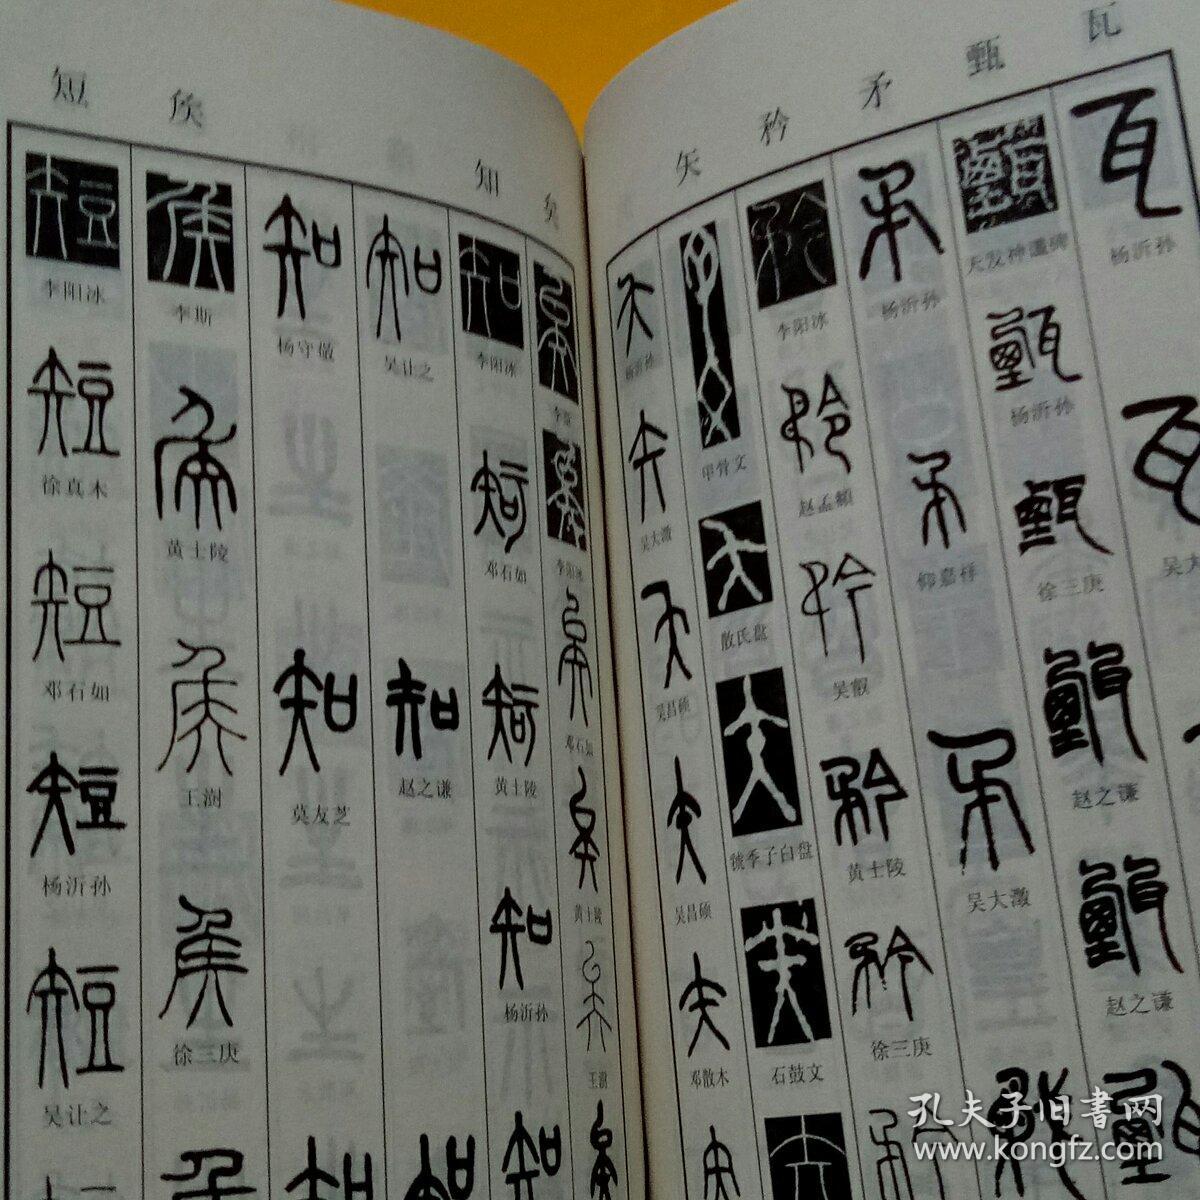 瓦
甄
矛
矜
矢
矣
知
侯
短
杨沂孙
天发神谶碑
杨沂孙
徐三庚
赵之谦
赵之谦
杨沂孙
仰嘉祥
吴大澂
李阳冰
赵孟頫
吴叡
黄士陵
徐三庚
甲骨文
散氏盘
虢季子白盘
石鼓文
杨沂孙
吴大澂
吴昌硕
吴昌硕
邓散木
李阳冰
邓石如
黄士陵
王澍
李阳冰
邓石如
黄士陵
杨沂孙
吴让之
赵之谦
杨守敬
莫友芝
李斯
黄士陵
王澍
徐三庚
李阳冰
徐真木
邓石如
杨沂孙
吴让之
孔夫子旧书网
www.kongfz.com